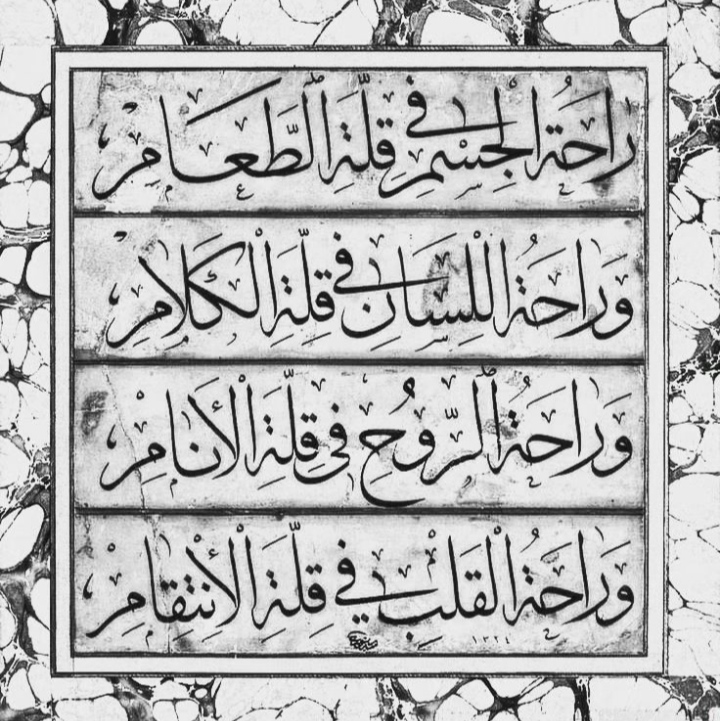 رَاحَةُ الْجِسْمِ فِي قِلَّةِ الطَّعَامِ
وَرَاحَةُ اللِّسَانِ فِي قِلَّةِ الْكَلَامِ
وَرَاحَةُ الرُّوحِ فِي قِلَّةِ الْأَنَامِ
وَرَاحَةُ الْقَلْبِ فِي قِلَّةِ الْإِنْتِقَامِ